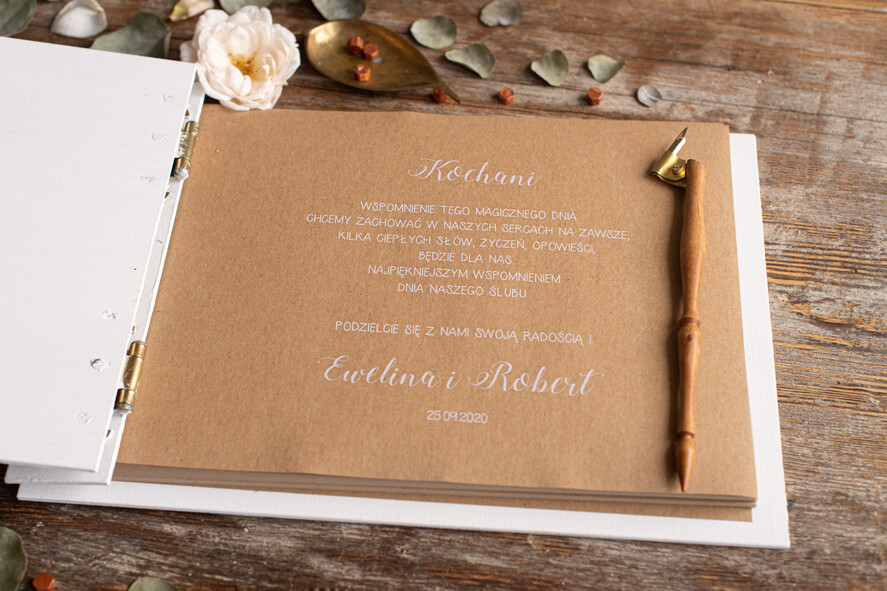 Kochani
WSPOMNIENIE TEGO MAGICZNEGO DNIA
CHCEMY ZACHOWAĆ W NASZYCH SERCACH NA ZAWSZE,
KILKA CIEPŁYCH SŁÓW, ŻYCZEŃ, OPOWIEŚCI,
BĘDZIE DLA NAS
NAJPIĘKNIEJSZYM WSPOMNIENIEM
DNIA NASZEGO ŚLUBU
PODZIELCIE SIĘ Z NAMI SWOJĄ RADOŚCIĄ !
Ewelina i Robert
25.09.2020